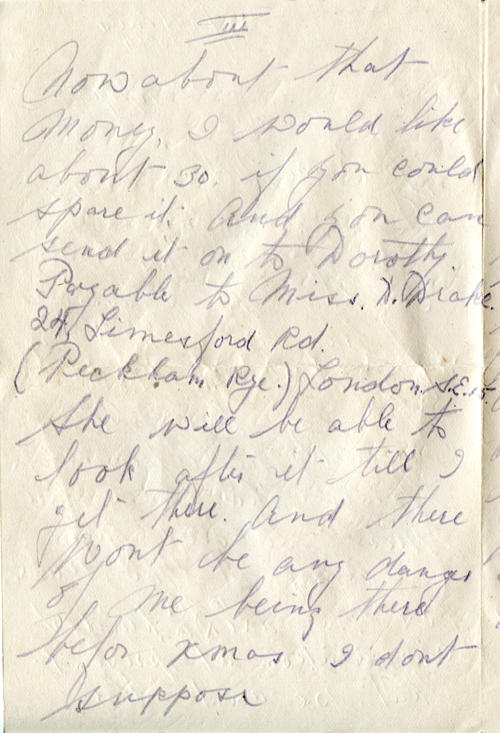 III
Now about that
Money, I would like
about 30. if you could
spare it. And you can
send it on to Dorothy
Payable to Miss. D. Drake.
24, Limesford Rd.
(Peckham Rye.) London S.E.15.
She will be able to
look after it till I
get there. And there
Wont be any danger
of me being there
befor xmas I dont
suppose